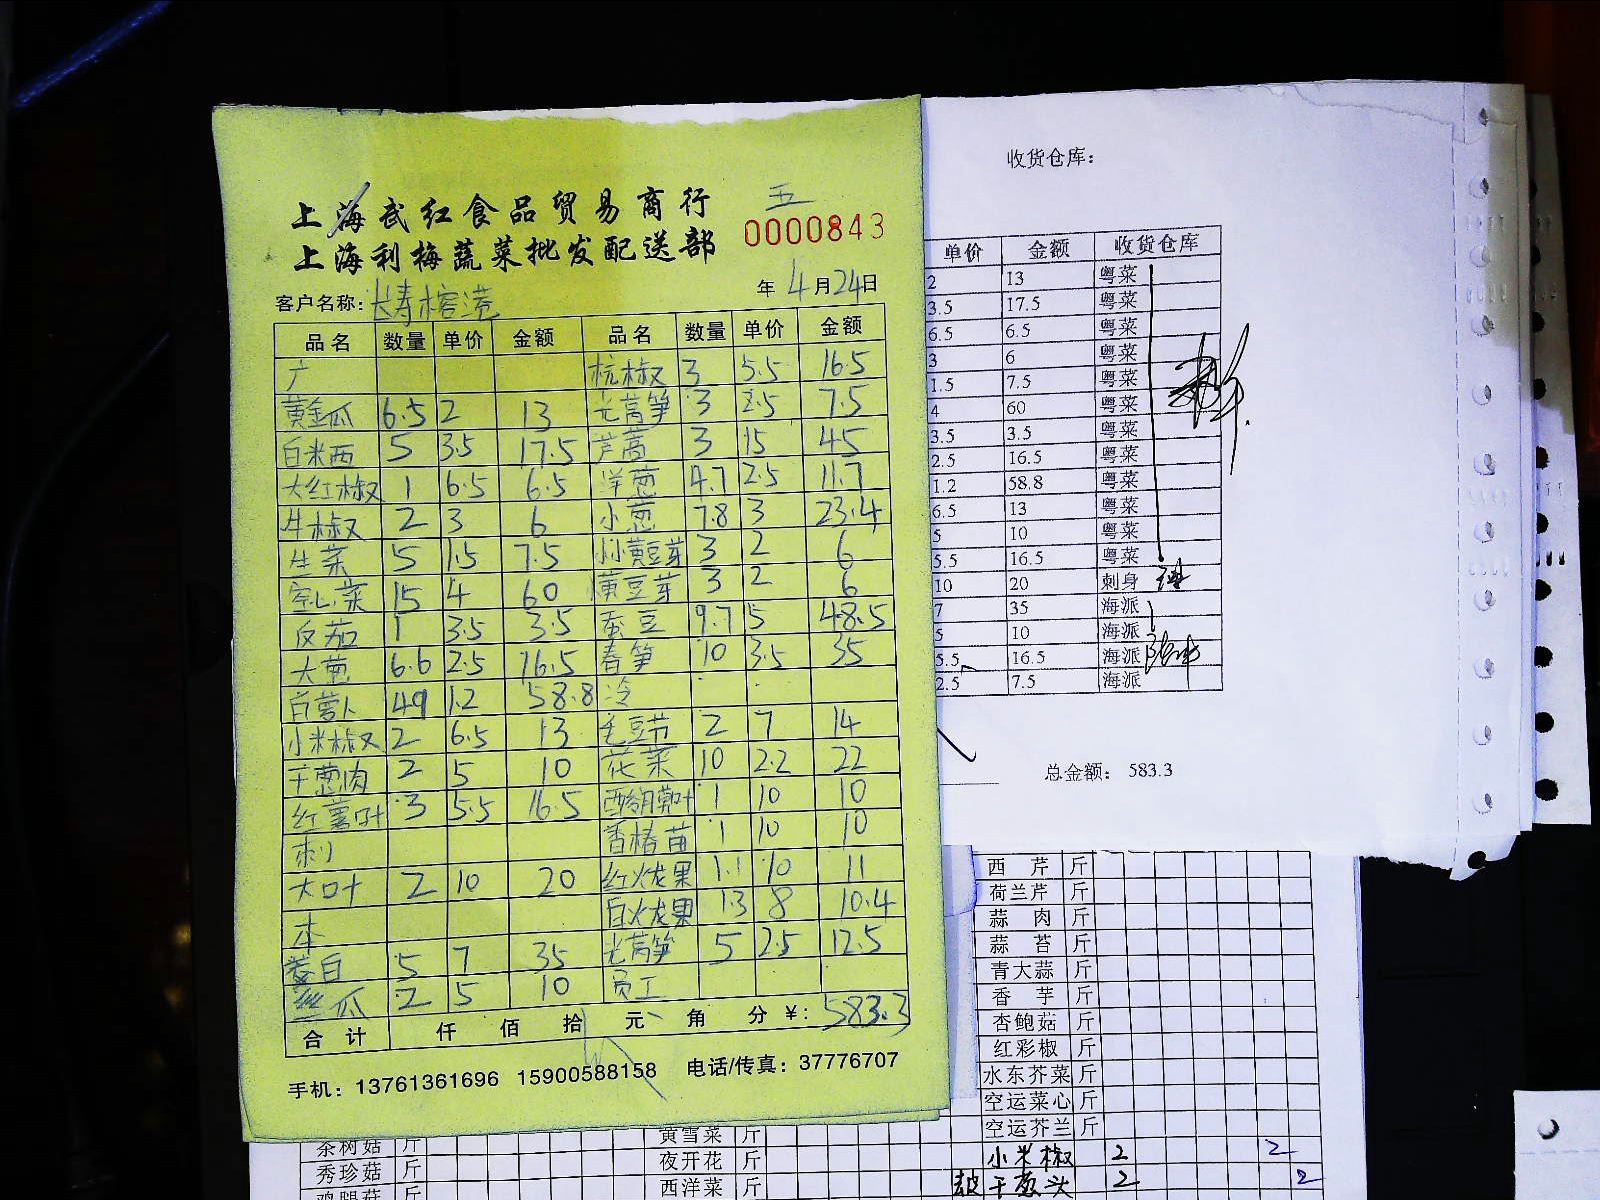 上海武红食品贸易商行
五
上海利梅蔬菜批发配送部
0000843
年 4月24日
客户名称: 长寿榕港
品名 数量 单价 金额 品名 数量 单价 金额
广 杭椒 3 5.5 16.5
黄金瓜 6.5 2 13 光莴笋 3 2.5 7.5
白米西 5 3.5 17.5 芦蒿 3 15 45
大红椒 1 6.5 6.5 洋葱 4.7 2.5 11.7
牛椒 2 3 6 小葱 7.8 3 23.4
生菜 5 1.5 7.5 小黄豆芽 3 2 6
空心菜 15 4 60 黄豆芽 3 2 6
反茄 1 3.5 3.5 蚕豆 9.7 5 48.5
大葱 6.6 2.5 16.5 春笋 10 3.5 35
白萝卜 49 1.2 58.8 冷
小米椒 2 6.5 13 毛豆节 2 7 14
干葱肉 2 5 10 花菜 10 2.2 22
红薯叶 3 5.5 16.5 1 10 10
刺 香椿苗 1 10 10
大叶 2 10 20 红火龙果 1.1 10 11
本 白火龙果 1.3 8 10.4
茭白 5 7 35 光莴笋 5 2.5 12.5
丝瓜 2 5 10 员工
合计 仟 佰 拾 元 角 分 ¥: 583.3
手机: 13761361696 15900588158 电话/传真: 37776707
收货仓库:
单价 金额 收货仓库
2 13 粤菜
3.5 17.5 粤菜
6.5 6.5 粤菜
3 6 粤菜
1.5 7.5 粤菜
4 60 粤菜
3.5 3.5 粤菜
2.5 16.5 粤菜
1.2 58.8 粤菜
6.5 13 粤菜
5 10 粤菜
5.5 16.5 粤菜
10 20 刺身
7 35 海派
5 10 海派
5.5 16.5 海派
2.5 7.5 海派
总金额: 583.3
西芹 斤
荷兰芹 斤
蒜肉 斤
蒜苔 斤
青大蒜 斤
香芋 斤
杏鲍菇 斤
红彩椒 斤
水东芥菜 斤
空运菜心 斤
空运芥兰 斤
茶树菇 斤 黄雪菜 斤 小米椒 2 2
秀珍菇 斤 夜开花 斤 干葱头 2 2
鸡腿菇 斤 西洋菜 斤